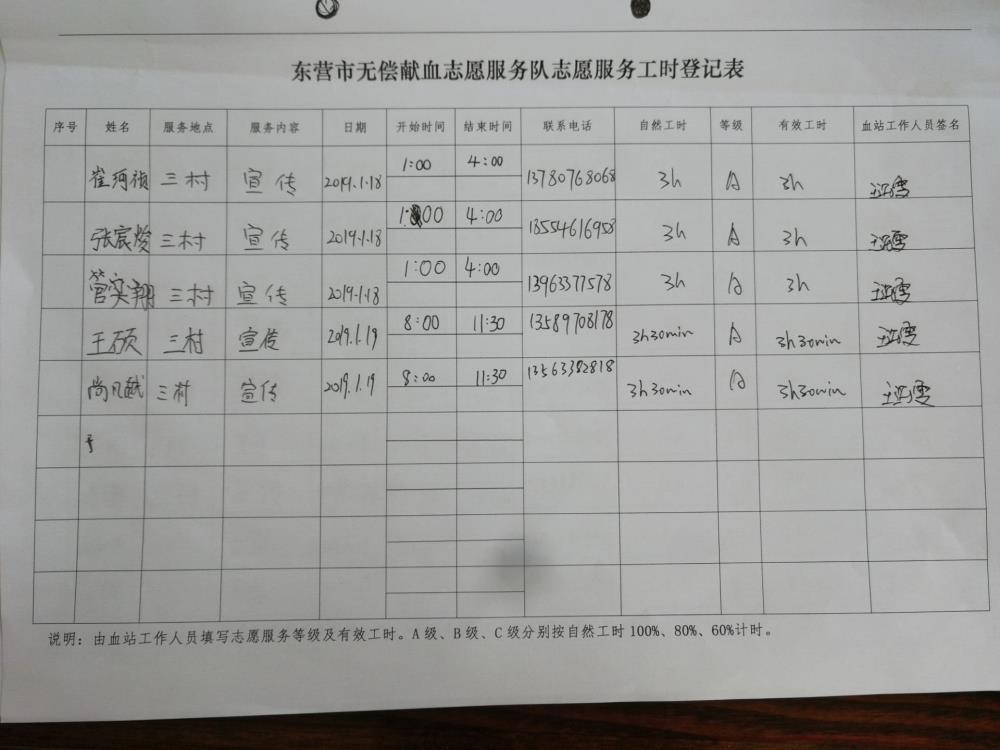 东营市无偿献血志愿服务队志愿服务工时登记表
序号 姓名 服务地点 服务内容 日期 开始时间 结束时间 联系电话 自然工时 等级 有效工时 血站工作人员签名
三村 宣传 2019.1.18 1:00 4:00 13780768068 3h A 3h
三村 宣传 2019.1.18 1:00 4:00 18554616958 3h A 3h
管奕翔 三村 宣传 2019.1.18 1:00 4:00 13963377578 3h A 3h
王硕 三村 宣传 2019.1.19 8:00 11:30 13589708178 3h30min A 3h30min
尚凡越 三村 宣传 2019.1.19 8:00 11:30 13563382818 3h30min A 3h30min
说明：由血站工作人员填写志愿服务等级及有效工时。A级、B级、C级分别按自然工时100%、80%、60%计时。